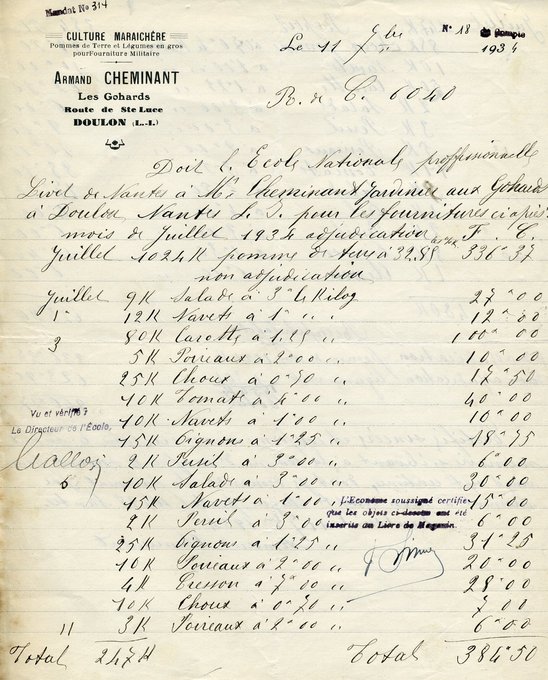 Mandat No 314
CULTURE MARAICHÈRE
Pommes de Terre et Légumes en gros
pour Fourniture Militaire
ARMAND CHEMINANT
Les Gohards
Route de Ste Luce
DOULON (L.-I.)
N° 18
Le 11 7bre 1934
R. de C. 6040
Doit l. Ecole Nationale proffessionnelle
Livet de Nantes à Mr Cheminant Jardinier aux Gohards
à Doulon Nantes L. I. pour les fournitures ci après
mois de Juillet 1934 adjudication F. C.
Juillet 1024K pomme de terre à 32,85 les %K 336"37
non adjudication
Juillet 9K Salade à 3" le Kilog 27"00
1" 12K Navets à 1" " " 12"00
3 80K Carotte à 1.25 " " 100"00
5K Poireaux à 2"00 " " 10"00
25K Choux à 0"70 " " 17"50
10K Tomate à 4"00 " " 40"00
Vu et vérifié
10K Navets à 1"00 " " 10"00
Le Directeur de l'École,
15K Oignons à 1"25 " " 18"75
2K Persil à 3"00 " " 6"00
10K Salade à 3"00 " " 30"00
15K Navets à 1"00 " " 15"00
L'Econome soussigné certifie
que les objets ci-dessus ont été
inscrits au Livre de Magasin.
2K Persil à 3"00 6"00
25K Oignons à 1"25 " " 31"25
10K Poireaux à 2"00 " " 20"00
4K Cresson à 7"00 " " 28"00
10K Choux à 0"70 " " 7"00
11 3K Poireaux à 2"00 " " 6"00
Total 247K Total 384"50